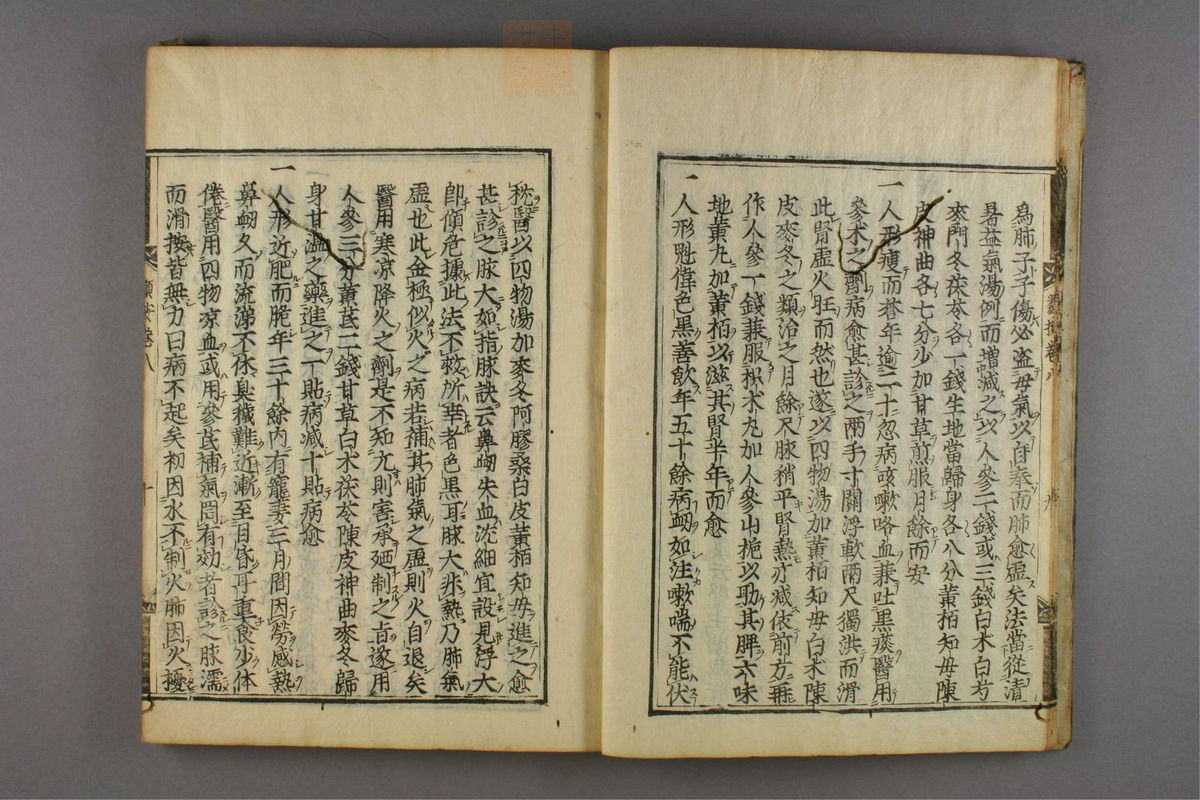 為肺子子傷必盜母氣以自奉而肺愈虛矣法當從清
暑益氣湯例而增減之以人參二錢或三錢白朮白芍
麥門冬茯苓各一錢生地當歸身各八分黃栢知母陳
皮神曲各七分少加甘草煎服月餘而安
一人形瘦而蒼年逾二十忽病咳嗽咯血兼吐黑痰醫用
參朮之劑病愈甚診之兩手寸關浮軟兩尺獨洪而滑
此腎虛火旺而然也遂以四物湯加黃栢知母白朮陳
皮麥冬之類治之月餘尺脉稍平腎熱亦減依前方再
作人參一錢兼服枳朮丸加人參山梔以助其脾六味
地黃丸加黃栢以滋其腎半年而愈
一人形魁偉色黑善飲年五十餘病衂如注嗽喘不能伏
枕醫以四物湯加麥冬阿膠桑白皮黃栢知母進之愈
甚診之脉大如指脉訣云鼻衂失血沈細宜設見浮大
卽傾危據此法不救所幸者色黑耳脉大非熱乃肺氣
虛也此金極似火之病若補其肺氣之虛則火自退矣
醫用寒凉降火之劑是不知亢則害承廼制之旨遂用
人參三分黃芪二錢甘草白朮茯苓陳皮神曲麥冬歸
身甘溫之藥進之一貼病減十貼病愈
一人形近肥而脆年三十餘內有寵妻三月間因勞感熱
鼻衂久而流涕不休臭穢難近漸至目昏耳重食少体
倦醫用四物凉血或用參芪補氣罔有効者診之脉濡
而滑按皆無力曰病不起矣初因水不制火肺因火擾
卷八